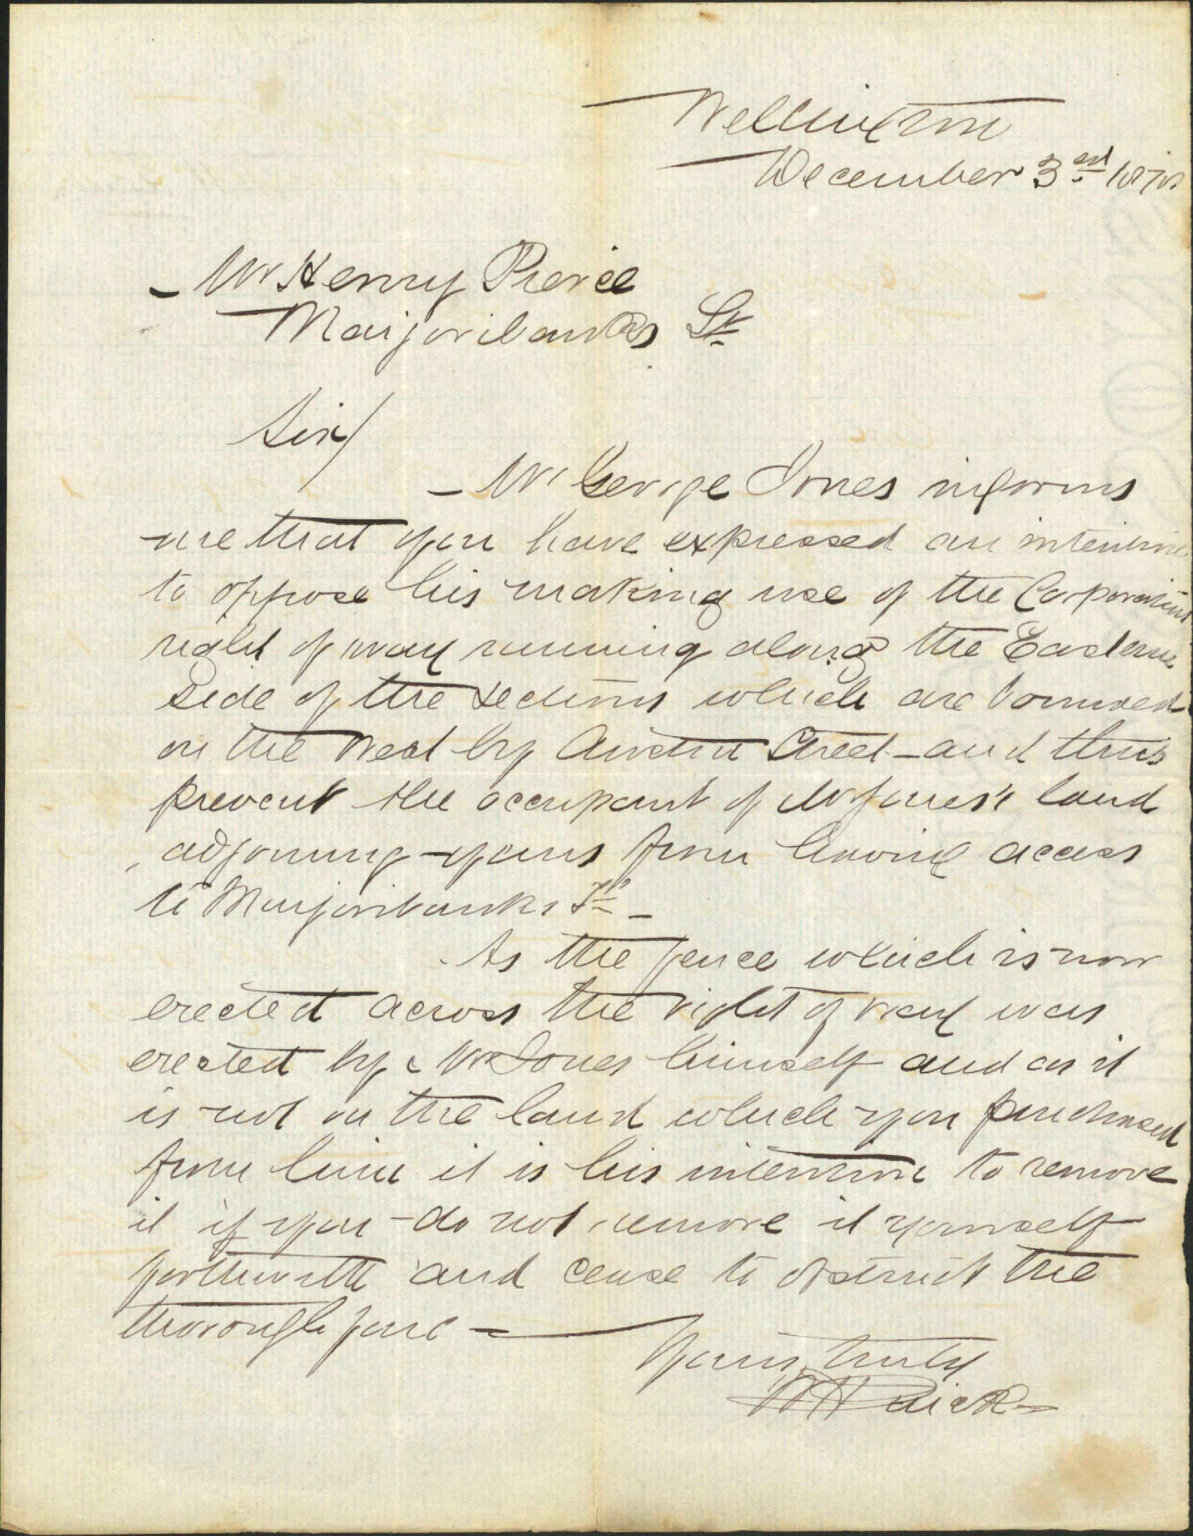 Wellington
December 3rd 187
Mr Henry Pierce
Marjoribanks St
Sir/
Mr George Jones informs
me that you have expressed an intention
to oppose his making use of the Corporation
right of way running along the Eastern
side of the sections which are bounded
on the West by Austin Street - and thus
prevent the occupant of Mr Jones's land
adjoining yours from having access
to Marjoribanks St -
As the fence which is now
erected across the right of way was
erected by Mr Jones himself and as it
is not on the land which you purchased
from him it is his intention to remove
it if you do not remove it yourself
forthwith and cease to obstruct the
thoroughfare -
Yours truly